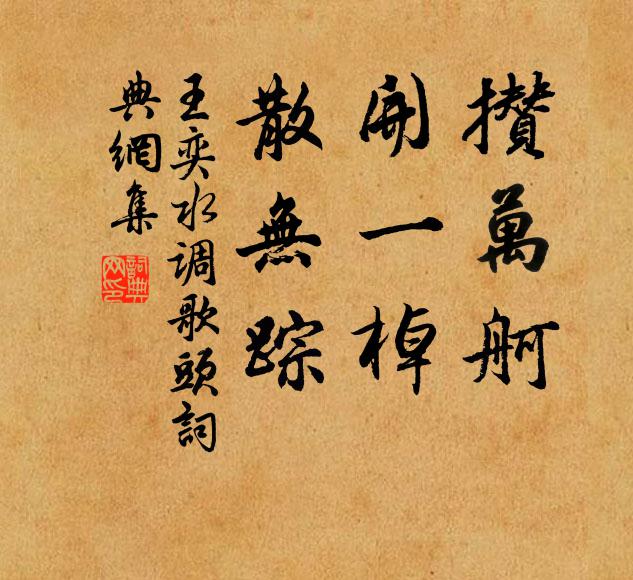 攅萬舸
開一棹
散無踪
王奕水调歌頭詞
典網集
詞典網印